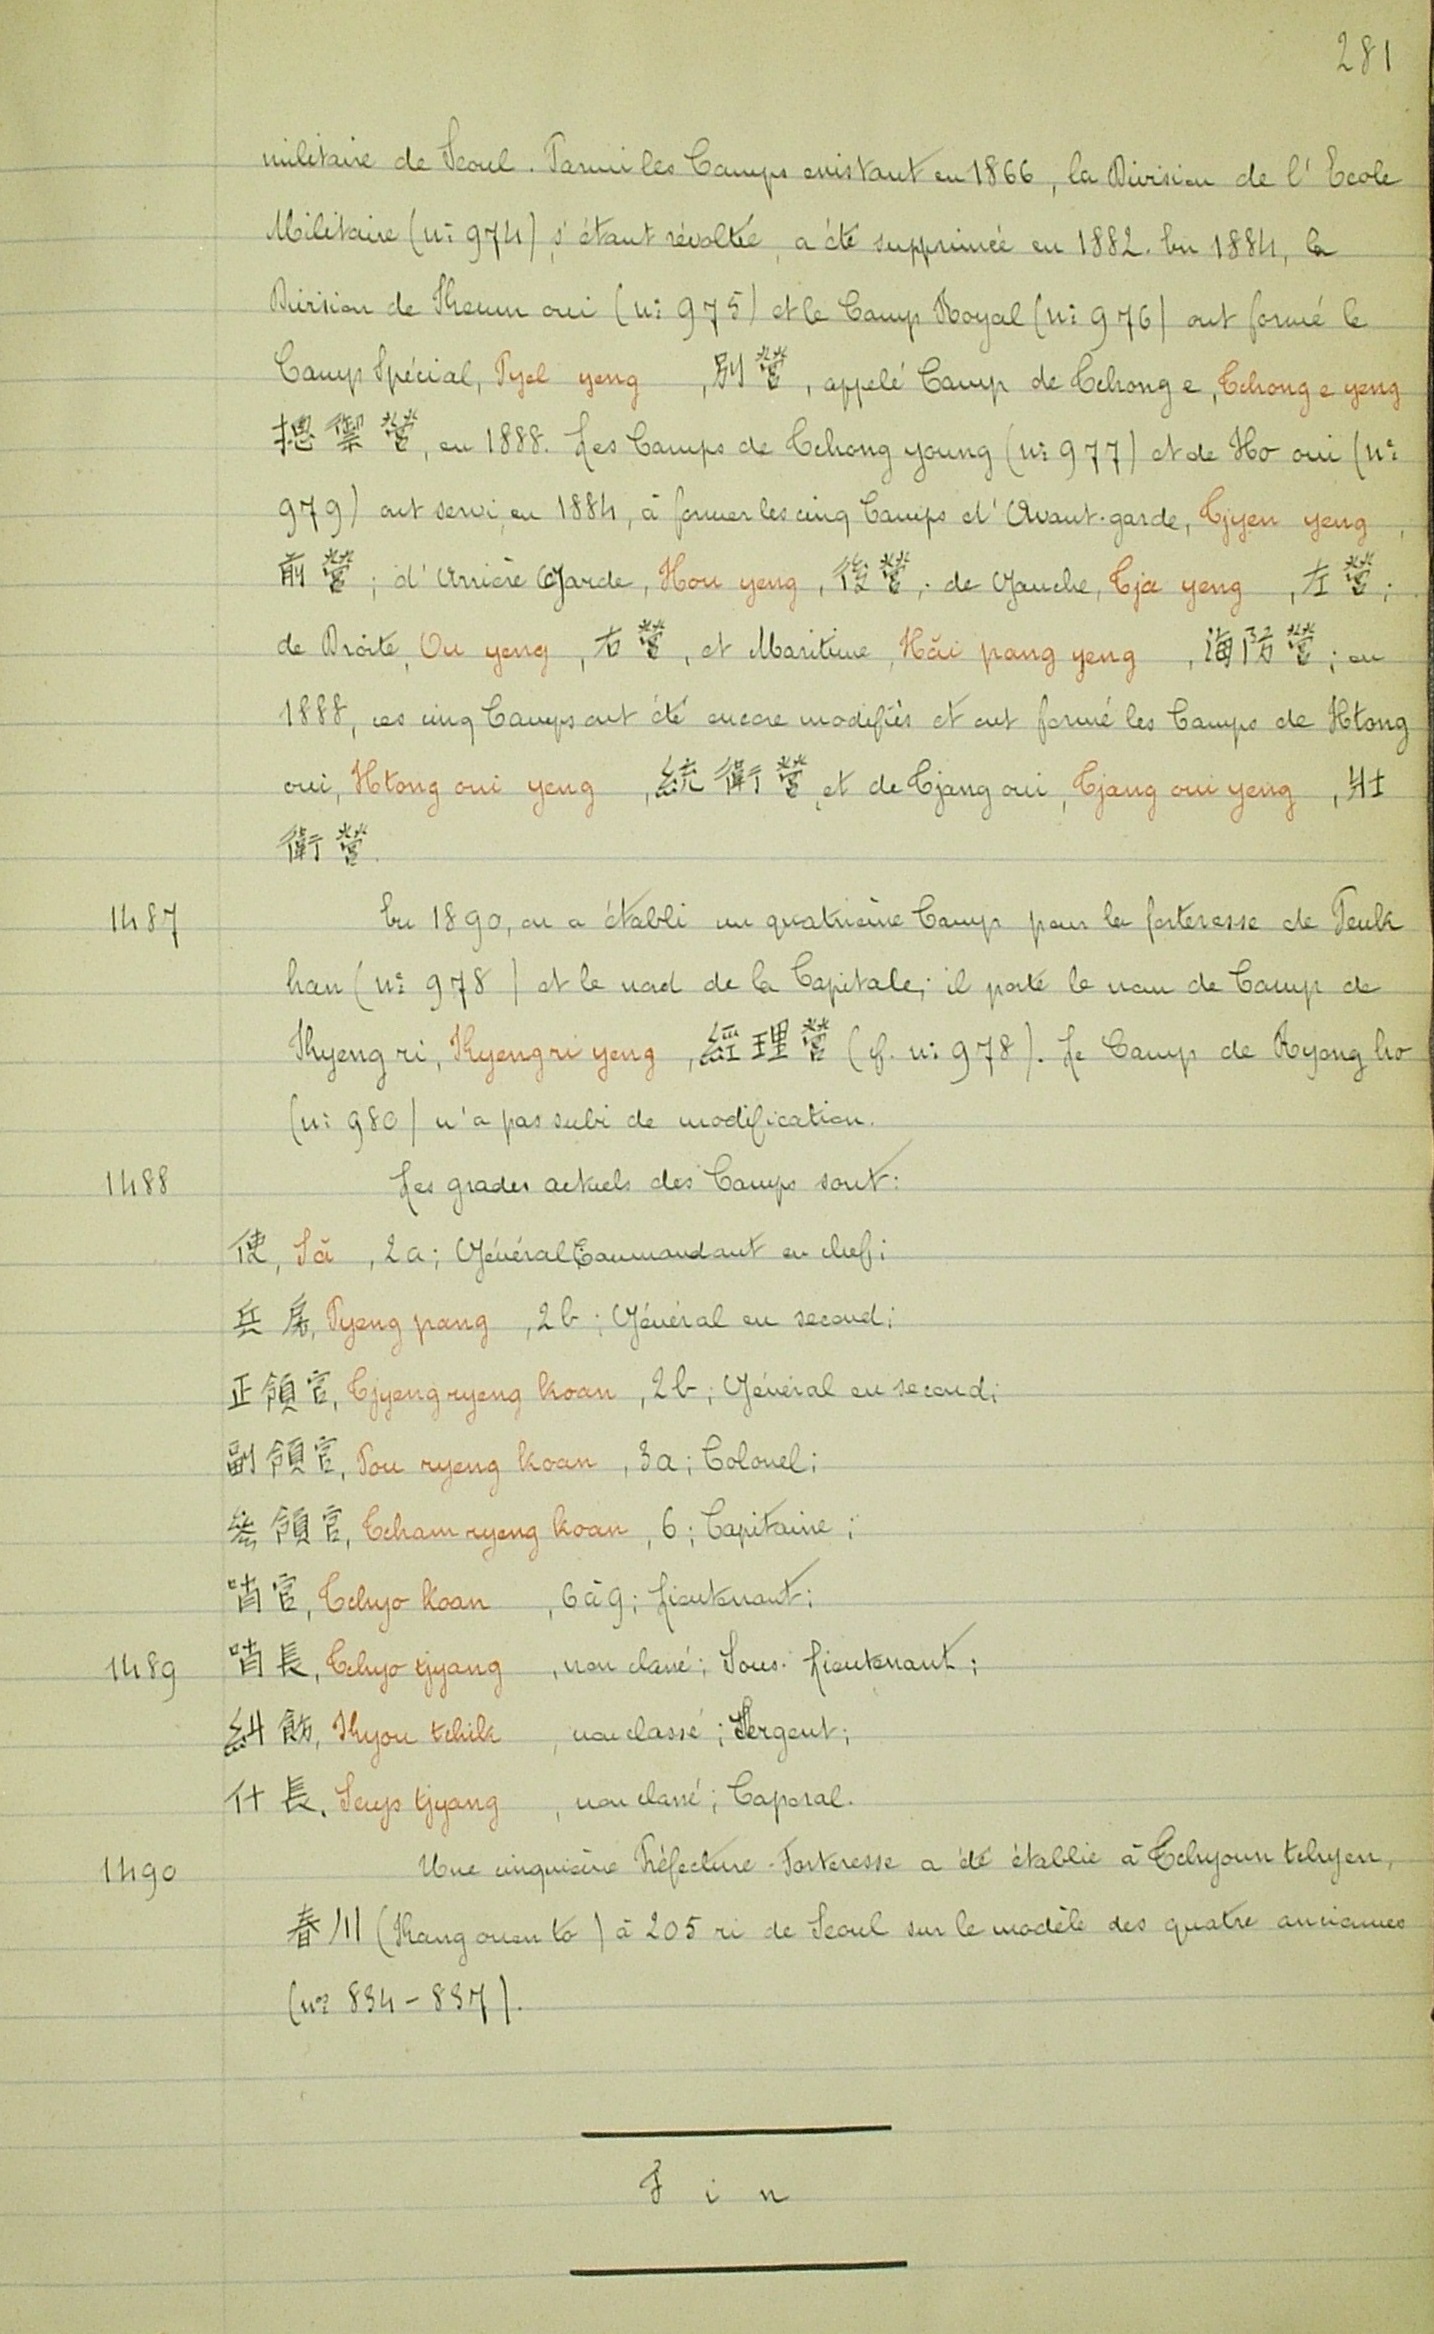 281
militaire de Seoul. Parmi les Camps existant en 1866, la Division de l'Ecole
Militaire (nº 974), s'étant révoltée, a été supprimée en 1882. En 1884, la
Division de Keum oui (nº 975) et le Camp Royal (nº 976) ont formé le
Camp Spécial, Pyel yeng, 別營, appelé Camp de Tchong e, Tchong e yeng
摠禦營, en 1888. Les Camps de Tchong young (nº 977) et de Ho oui (nº
979) ont servi, en 1884, à former les cinq Camps d'Avant-garde, Tjyen yeng,
前營; d'Arrière Garde, Hou yeng, 後營; de Gauche, Tja yeng, 左營;
de Droite, Ou yeng, 右營, et Maritime, Hăi pang yeng, 海防營; en
1888, ces cinq Camps ont été encore modifiés et ont formé les Camps de Htong
oui, Htong oui yeng, 統衛營, et de Tjang oui, Tjang oui yeng, 壯
衛營.
1487 En 1890, on a établi un quatrième Camp pour la forteresse de Peuk
han (nº 978) et le nord de la Capitale; il porte le nom de Camp de
Kyeng ri, Kyeng ri yeng, 經理營 (cf. nº 978). Le Camp de Ryong ho
(nº 980) n'a pas subi de modification.
1488 Les grades actuels des Camps sont:
使, Să, 2a; Général Commandant en chef;
兵房, Pyeng pang, 2b; Général en second;
正領官, Tjyeng ryeng koan, 2b; Général en second;
副領官, Pou ryeng koan, 3a; Colonel;
參領官, Tcham ryeng koan, 6; Capitaine;
哨官, Tchyo koan, 6 à 9; Lieutenant;
1489 哨長, Tchyo tjyang, non classé; Sous-Lieutenant;
糾飭, Kyou tchik, non classé; Sergent;
什長, Seup tjyang, non classé; Caporal.
1490 Une cinquième Préfecture-Forteresse a été établie à Tchyoun tchyen,
春川 (Kang ouen to) à 205 ri de Seoul sur le modèle des quatre anciennes
(nos 834-837).
Fin